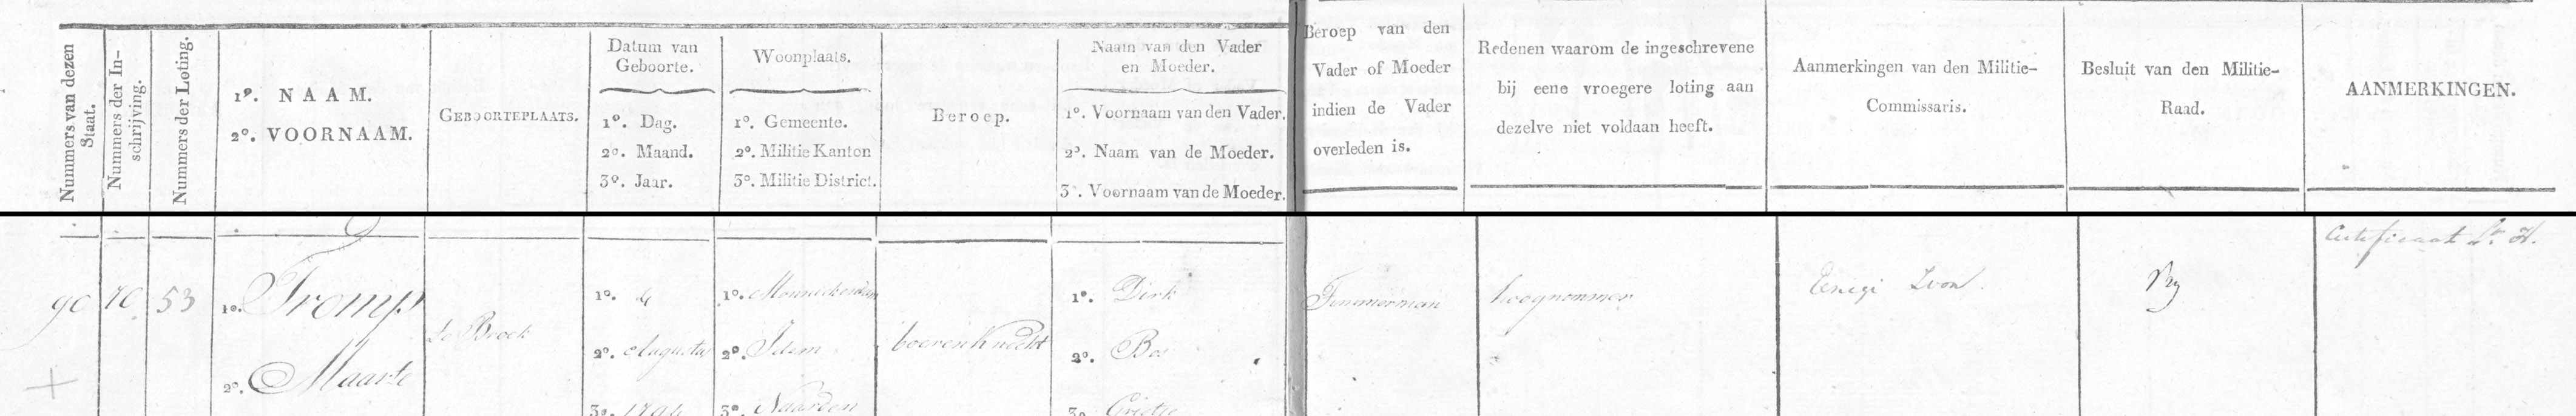 Nummers van dezen
Staat.
Nummers der In-
schrijving.
Nummers der Loting.
1º. NAAM.
2º. VOORNAAM.
GEBOORTEPLAATS.
Datum van
Geboorte.
1º. Dag.
2º. Maand.
3º. Jaar.
Woonplaats.
1º. Gemeente.
2º. Militie Kanton
3º. Militie District.
Beroep.
Naam van den Vader
en Moeder.
1º. Voornaam van den Vader.
2º. Naam van de Moeder.
3º. Voornaam van de Moeder.
Beroep van den
Vader of Moeder
indien de Vader
overleden is.
Redenen waarom de ingeschrevene
bij eene vroegere loting aan
dezelve niet voldaan heeft.
Aanmerkingen van den Militie-
Commissaris.
Besluit van den Militie-
Raad.
AANMERKINGEN.
90
10
53
1º. Tromp
2º. Maarte
Broek
1º. 4
2º. Augustus
3º. 1794
1º. Monnickendam
2º. Idem
3º. Naarden
boerenknecht
1º. Dirk
2º. Bos
3º. Grietje
Timmerman
hoognommer
Enigi Zoon
Certificaat